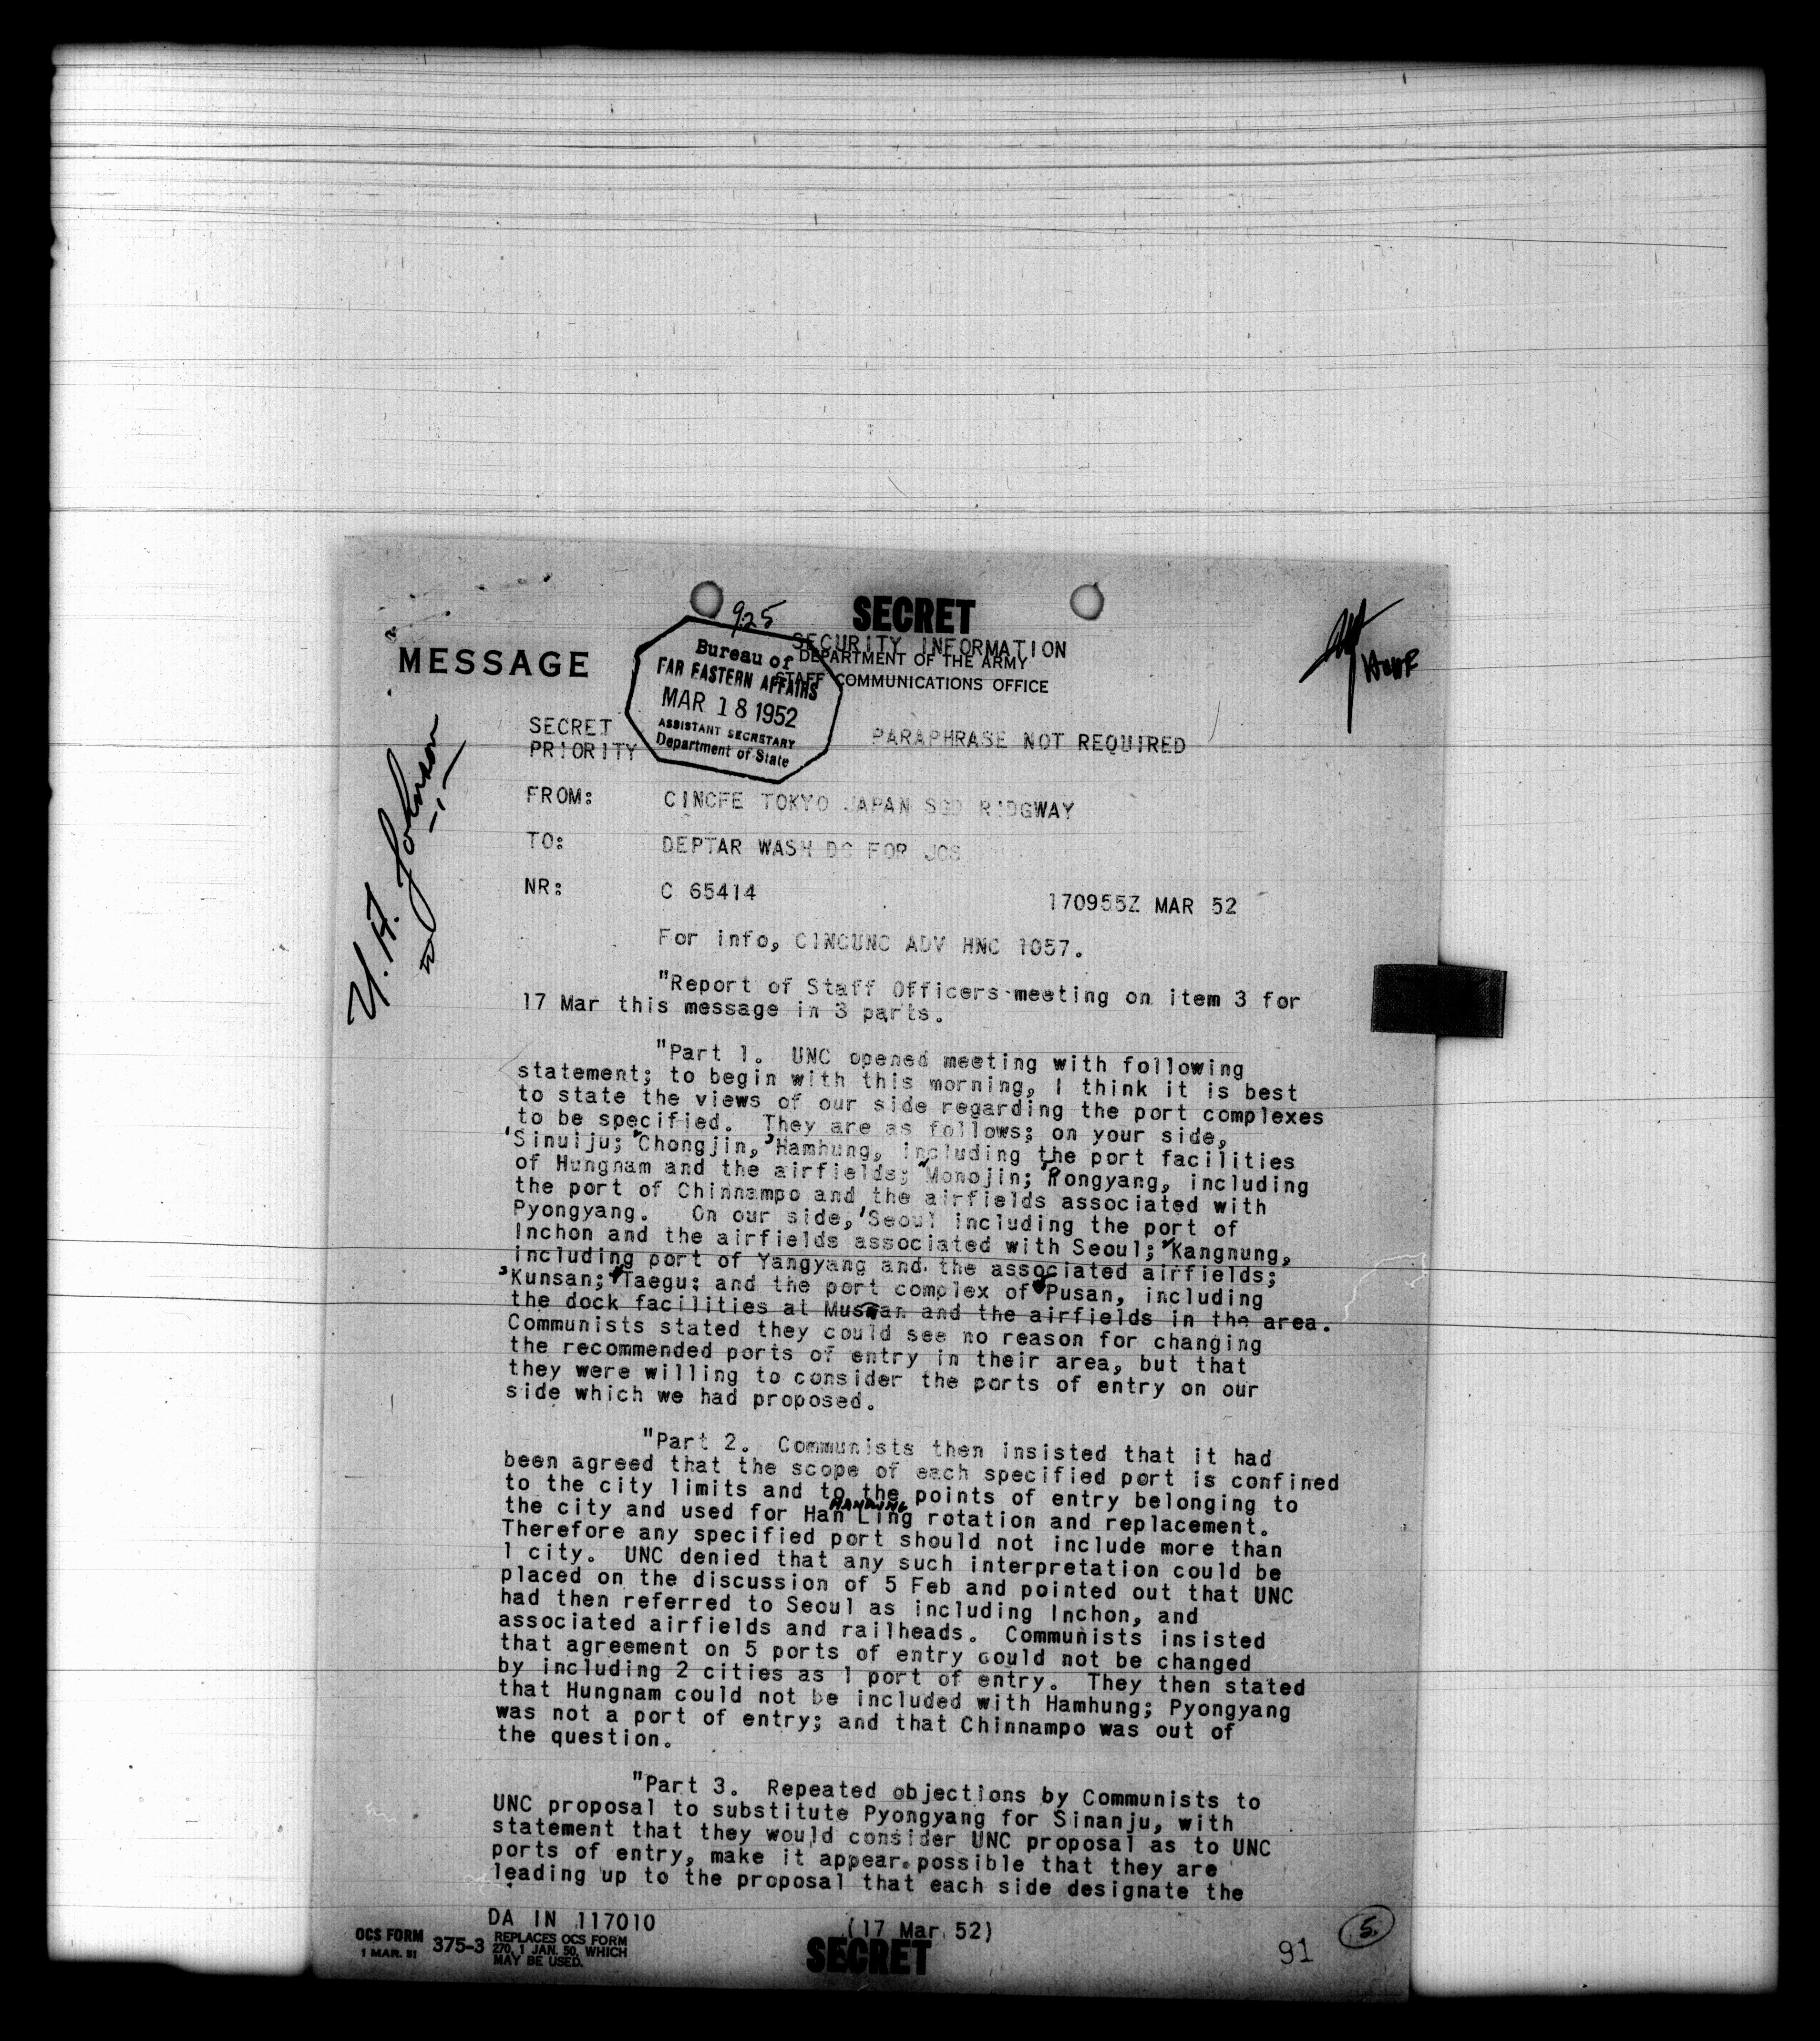 925
SECRET
SECURITY INFORMATION
MESSAGE
DEPARTMENT OF THE ARMY
STAFF COMMUNICATIONS OFFICE
Bureau of
FAR EASTERN AFFAIRS
MAR 18 1952
ASSISTANT SECRETARY
Department of State
SECRET
PRIORITY
PARAPHRASE NOT REQUIRED
U. A. Johnson
FROM: CINCFE TOKYO JAPAN SGD RIDGWAY
TO: DEPTAR WASH DC FOR JCS
NR: C 65414 170955Z MAR 52
For info, CINCUNC ADV HNC 1057.
"Report of Staff Officers meeting on item 3 for
17 Mar this message in 3 parts.
"Part 1. UNC opened meeting with following
statement; to begin with this morning, I think it is best
to state the views of our side regarding the port complexes
to be specified. They are as follows; on your side,
Sinuiju; Chongjin, Hamhung, including the port facilities
of Hungnam and the airfields; Monojin; Pongyang, including
the port of Chinnampo and the airfields associated with
Pyongyang. On our side, Seoul including the port of
Inchon and the airfields associated with Seoul; Kangnung,
including port of Yangyang and the associated airfields;
Kunsan; Taegu; and the port complex of Pusan, including
the dock facilities at and the airfields in the area.
Communists stated they could see no reason for changing
the recommended ports of entry in their area, but that
they were willing to consider the ports of entry on our
side which we had proposed.
"Part 2. Communists then insisted that it had
been agreed that the scope of each specified port is confined
to the city limits and to the points of entry belonging to
HANDLING
the city and used for Han Ling rotation and replacement.
Therefore any specified port should not include more than
1 city. UNC denied that any such interpretation could be
placed on the discussion of 5 Feb and pointed out that UNC
had then referred to Seoul as including Inchon, and
associated airfields and railheads. Communists insisted
that agreement on 5 ports of entry could not be changed
by including 2 cities as 1 port of entry. They then stated
that Hungnam could not be included with Hamhung; Pyongyang
was not a port of entry; and that Chinnampo was out of
the question.
"Part 3. Repeated objections by Communists to
UNC proposal to substitute Pyongyang for Sinanju, with
statement that they would consider UNC proposal as to UNC
ports of entry, make it appear possible that they are
leading up to the proposal that each side designate the
DA IN 117010 (17 Mar 52)
OCS FORM 375-3 REPLACES OCS FORM
1 MAR. 51 270, 1 JAN. 50, WHICH
MAY BE USED.
SECRET
91
5.